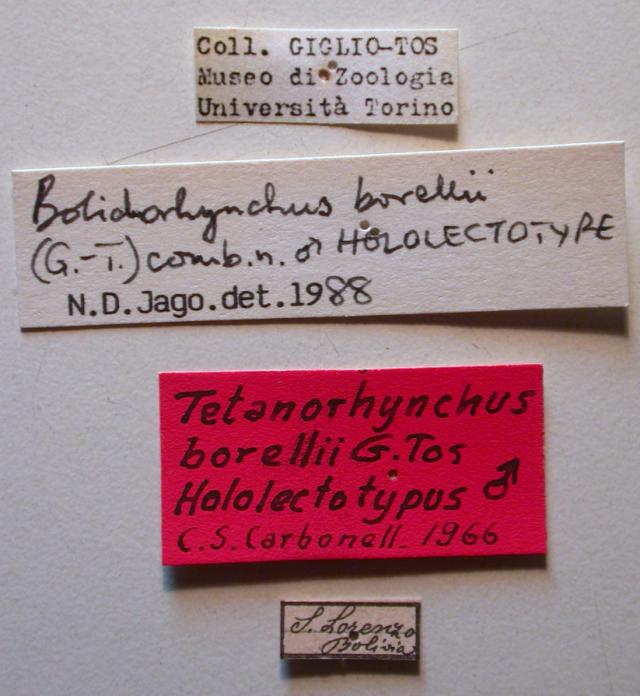 Coll. GIGLIO-TOS
Museo di Zoologia
Università Torino
Bolidorhynchus borellii
(G.-T.) comb.n. ♂ HOLOLECTOTYPE
N.D.Jago.det.1988
Tetanorhynchus
borellii G.Tos
Hololectotypus ♂
C.S. Carbonell_ 1966
S. Lorenzo
Bolivia